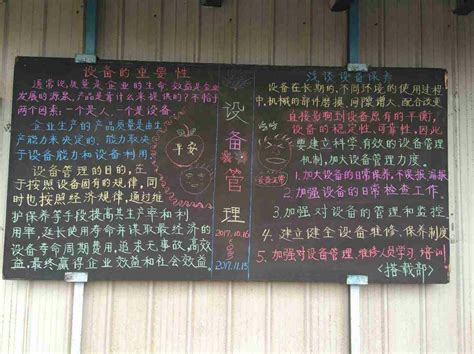 设备的重要性
通常说,质量是企业的生命,效益是企业
发展的源泉,产品是靠什么来提供的?不怕于
两个因素:一个是人,一个是设备。
企业生产的产品质量是由生
产能力来决定的,能力取决
于设备能力和设备利用
设备管理的目的,在
于按照设备固有的规律,同
时也按照经济规律,通过维
护保养等手段提高其生产率和利
用率,延长使用寿命并谋取最经济的
设备寿命周期费用,追求无事故,高效
益,最终赢得企业效益和社会效益。
平安
设备管理
2017.10.16
2017.11.15
浅谈设备保养
设备在长期的,不同环境的使用过程
中,机械的部件磨损,间隙增大,配合改变
直接影响到设备原有的平衡,
设备的稳定性,可靠性,因此
要建立科学,有效的设备管理
机制,加大设备管理力度。
1.加大设备的日常保养,不误报漏报
2.加强设备的日常检查工作。
3.加强对设备的管理和监控
4.建立健全设备维修、保养制度
5.加强对设备管理、维修人员学习、培训
<搭载部>